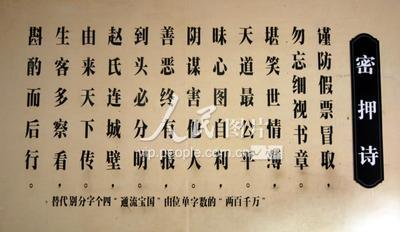 密押诗
谨防假票冒取，
勿忘细视书章。
堪笑世情薄，
天道最公平。
昧心图自利，
阴谋害他人。
善恶终有报，
到头必分明。
赵氏连城壁，
由来天下传。
生客多察看，
斟酌而后行。
“万千百两”的数字单位由“国宝流通”四个字分别代替
人民图片